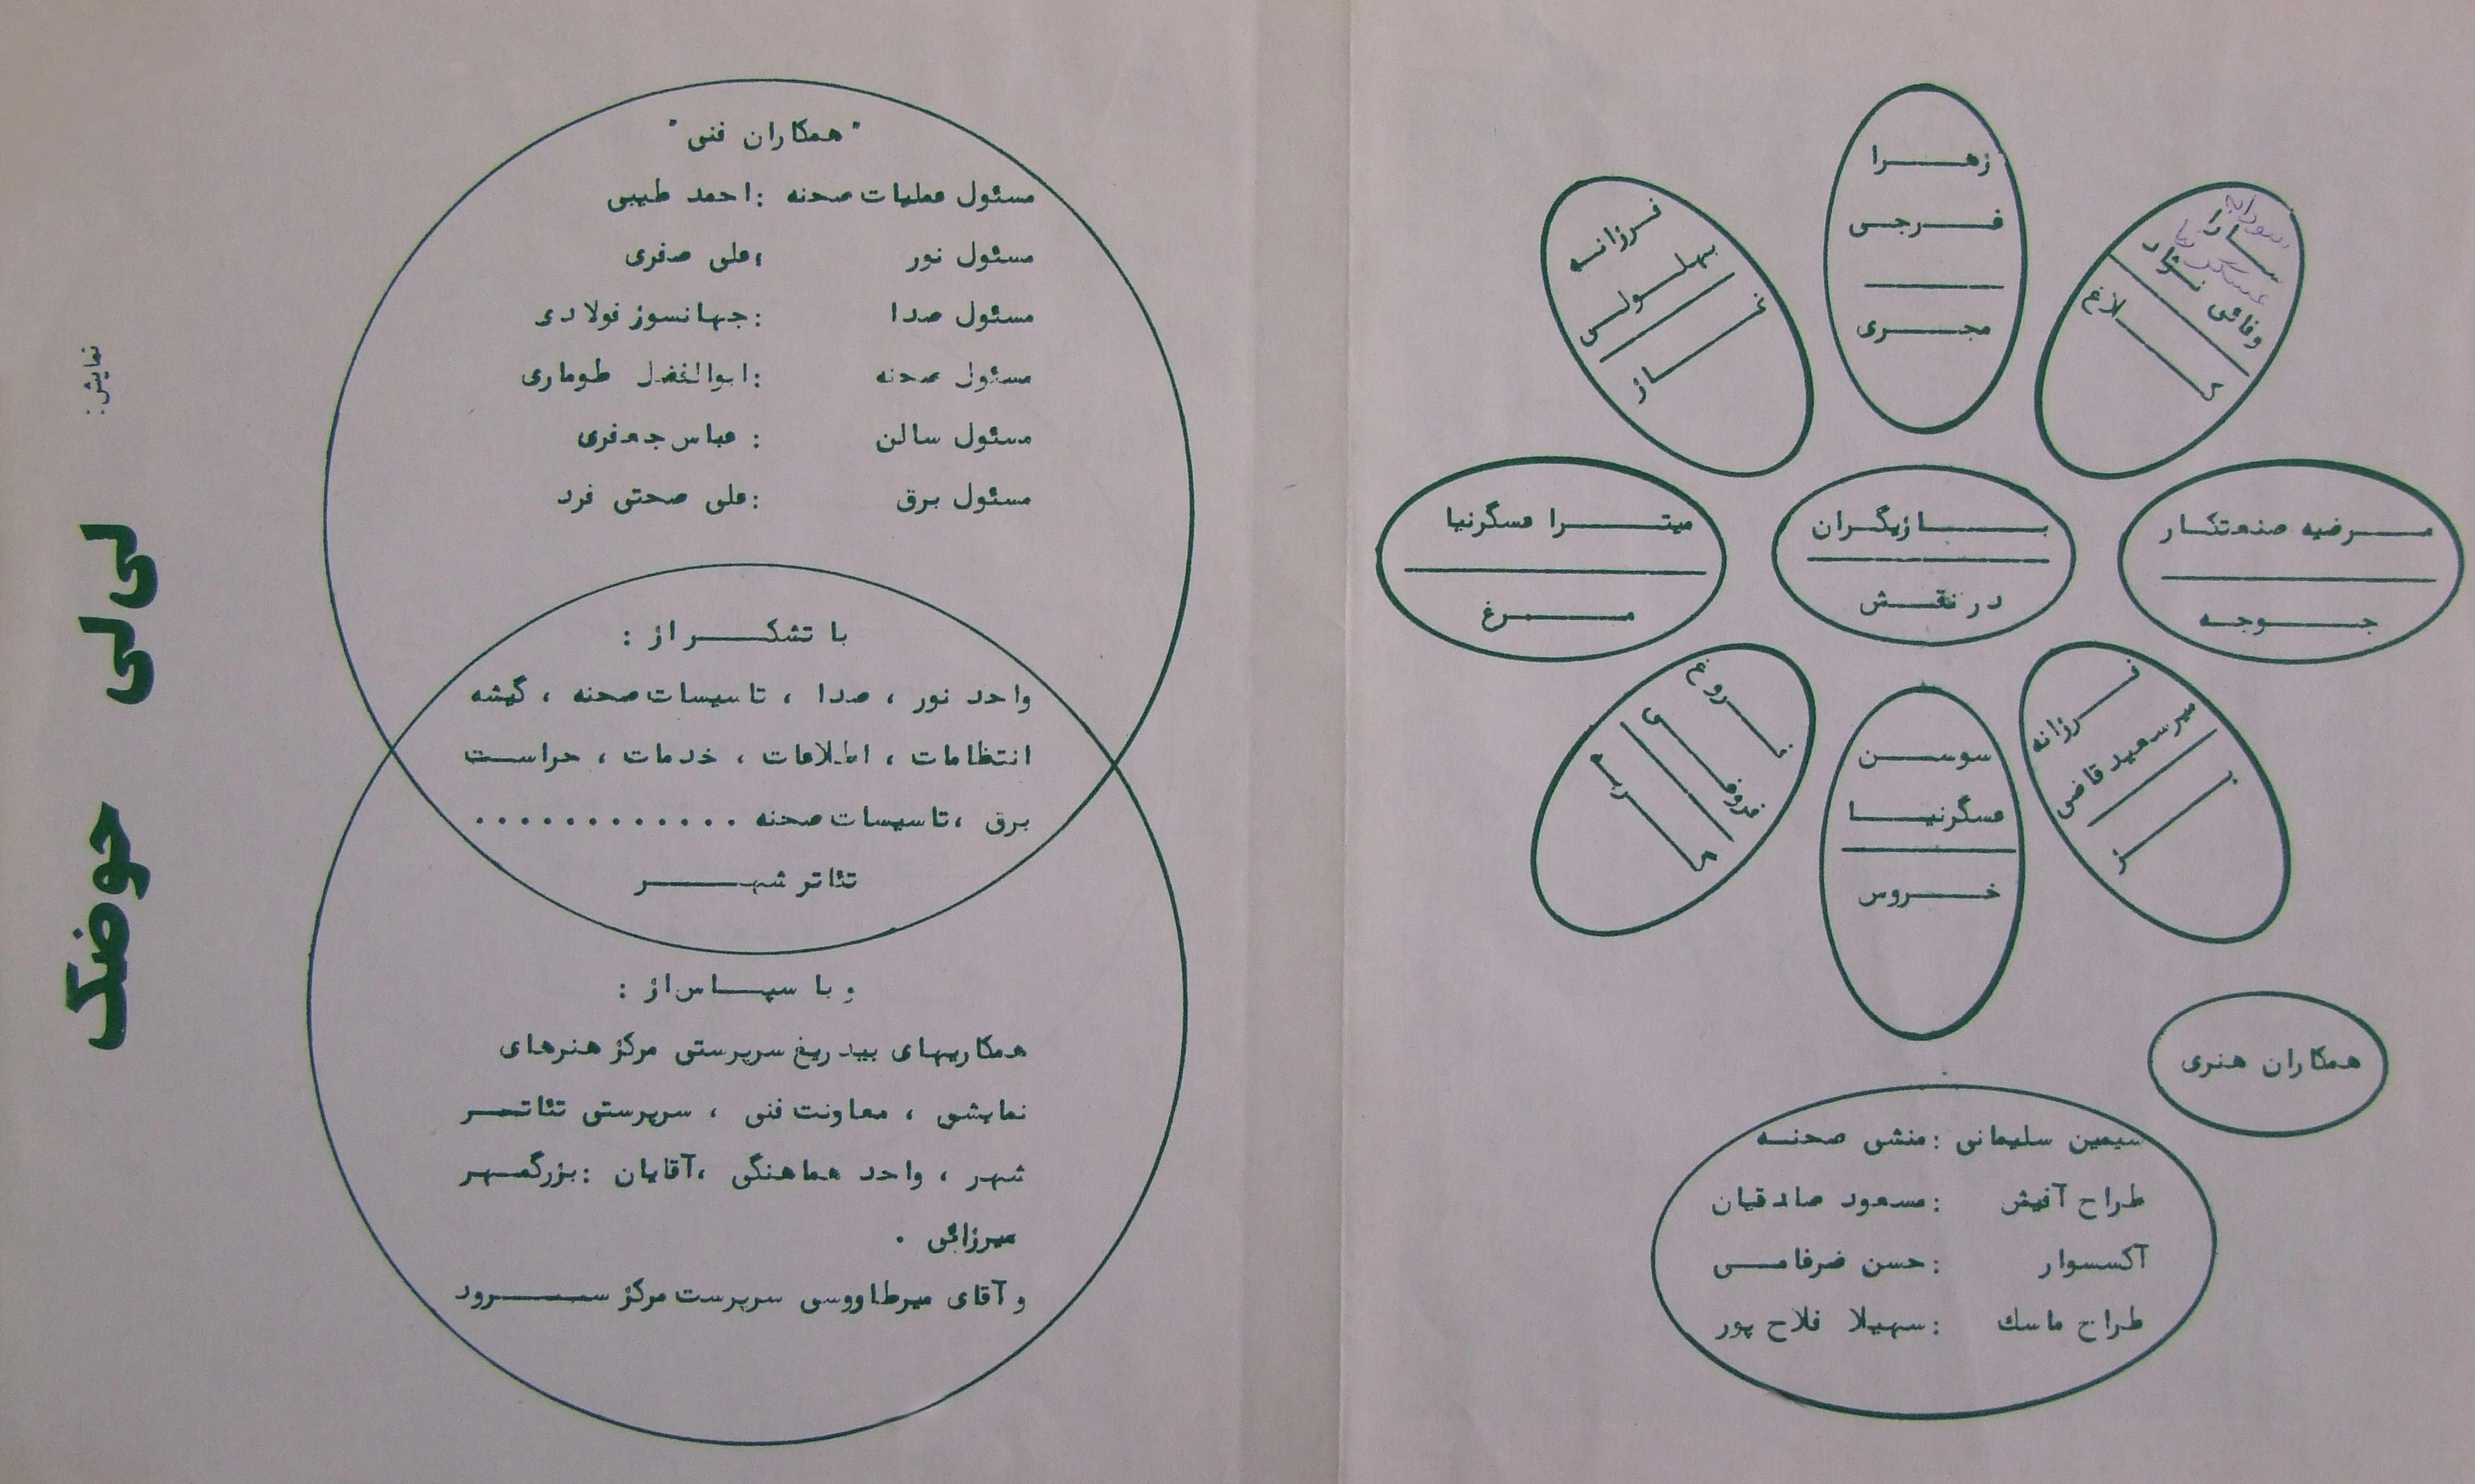 زهرا
فرجی
مجری
سودابه
عسگرنیا
سارا
وفائی نژاد
کلاغ
مرضیه صنعتکار
جوجه
فرزانه
میرسعید قاضی
بز
سوسن
مسگرنیا
خروس
فروغ
گربه
میترا مسگرنیا
مرغ
فرزانه
بهلولی
غاز
بازیگران
در نقش
همکاران هنری
سیمین سلیمانی : منشی صحنه
طراح آفیش : مسعود صادقیان
آکسسوار : حسن ضرفامی
طراح ماسک : سهیلا فلاح پور
"همکاران فنی"
مسئول عملیات صحنه : احمد طیبی
مسئول نور : علی صفری
مسئول صدا : جهانسوز فولادی
مسئول صحنه : ابوالفضل طوماری
مسئول سالن : عباس جعفری
مسئول برق : علی صحتی فرد
با تشکر از :
واحد نور ، صدا ، تاسیسات صحنه ، گیشه
انتظامات ، اطلاعات ، خدمات ، حراست
برق ، تاسیسات صحنه ............
تئاتر شهر
و با سپاس از :
همکاریهای بیدریغ سرپرستی مرکز هنرهای
نمایشی ، معاونت فنی ، سرپرستی تئاتر
شهر ، واحد هماهنگی ، آقایان : بزرگمهر
میرزائی .
و آقای میرطاووسی سرپرست مرکز سرود
نمایش :
لی لی حوضک